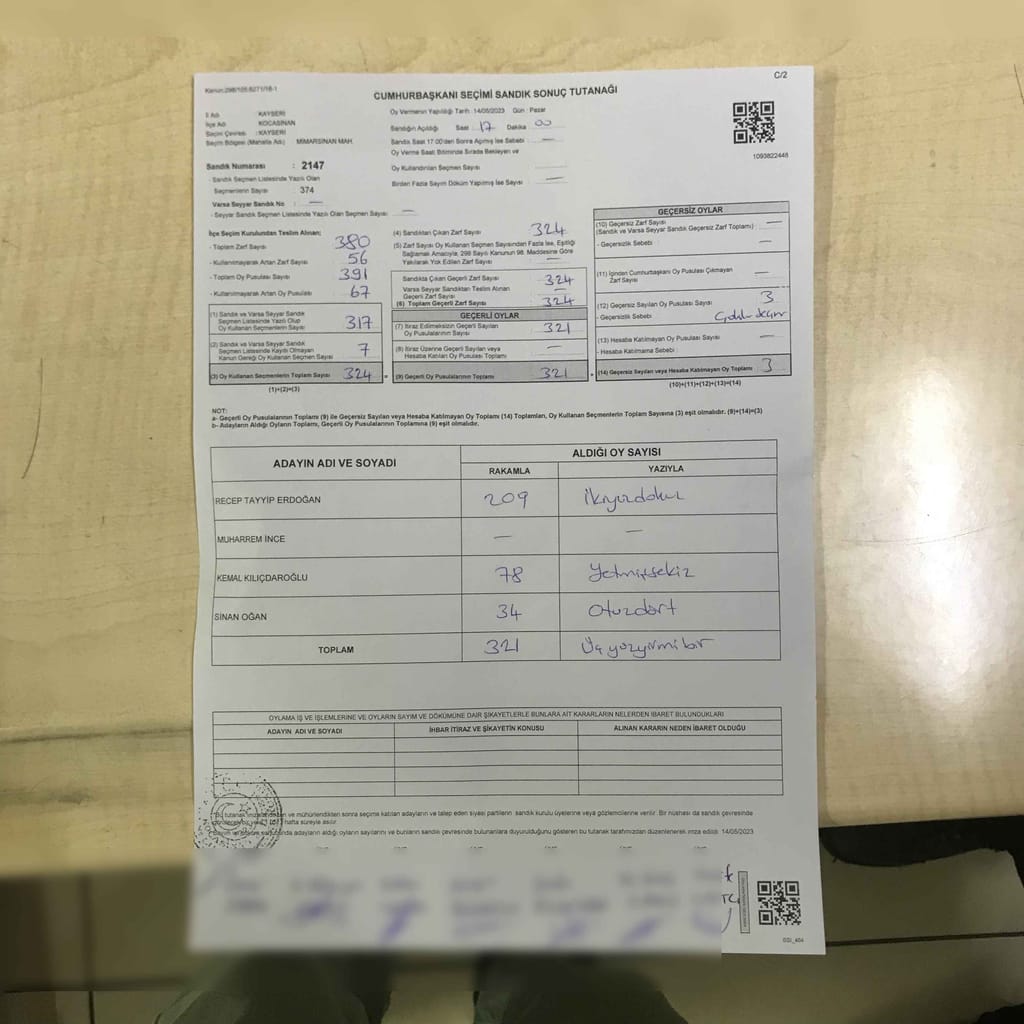 C/2
Kanun:298/105,6271/18-1
CUMHURBAŞKANI SEÇİMİ SANDIK SONUÇ TUTANAĞI
İl Adı : KAYSERİ
İlçe Adı : KOCASİNAN
Seçim Çevresi : KAYSERİ
Seçim Bölgesi (Mahalle Adı) : MİMARSİNAN MAH.
Sandık Numarası : 2147
- Sandık Seçmen Listesinde Yazılı Olan
Seçmenlerin Sayısı : 374
Varsa Seyyar Sandık No : —
- Seyyar Sandık Seçmen Listesinde Yazılı Olan Seçmen Sayısı : —
Oy Vermenin Yapıldığı Tarih : 14/05/2023 Gün : Pazar
Sandığın Açıldığı Saat 17 Dakika 00
Sandık Saat 17:00'den Sonra Açılmış İse Sebebi : —
Oy Verme Saati Bitiminde Sırada Bekleyen ve
Oy Kullandırılan Seçmen Sayısı : —
Birden Fazla Sayım Döküm Yapılmış İse Sayısı : —
1093822448
İlçe Seçim Kurulundan Teslim Alınan;
- Toplam Zarf Sayısı : 380
- Kullanılmayarak Artan Zarf Sayısı : 56
- Toplam Oy Pusulası Sayısı : 391
- Kullanılmayarak Artan Oy Pusulası : 67
(1) Sandık ve Varsa Seyyar Sandık
Seçmen Listesinde Yazılı Olup
Oy Kullanan Seçmenlerin Sayısı : 317
(2) Sandık ve Varsa Seyyar Sandık
Seçmen Listesinde Kaydı Olmayan
Kanun Gereği Oy Kullanan Seçmen Sayısı : 7
(3) Oy Kullanan Seçmenlerin Toplam Sayısı : 324
(1)+(2)=(3)
(4) Sandıktan Çıkan Zarf Sayısı : 324
(5) Zarf Sayısı Oy Kullanan Seçmen Sayısından Fazla İse, Eşitliği
Sağlamak Amacıyla, 298 Sayılı Kanunun 98. Maddesine Göre
Yakılarak Yok Edilen Zarf Sayısı : —
Sandıkta Çıkan Geçerli Zarf Sayısı : 324
Varsa Seyyar Sandıktan Teslim Alınan
Geçerli Zarf Sayısı : —
(6) Toplam Geçerli Zarf Sayısı : 324
GEÇERLİ OYLAR
(7) İtiraz Edilmeksizin Geçerli Sayılan
Oy Pusulalarının Sayısı : 321
(8) İtiraz Üzerine Geçerli Sayılan veya
Hesaba Katılan Oy Pusulası Toplamı : —
(9) Geçerli Oy Pusulalarının Toplamı : 321
GEÇERSİZ OYLAR
(10) Geçersiz Zarf Sayısı : —
(Sandık ve Varsa Seyyar Sandık Geçersiz Zarf Toplamı)
- Geçersizlik Sebebi : —
(11) İçinden Cumhurbaşkanı Oy Pusulası Çıkmayan
Zarf Sayısı : —
(12) Geçersiz Sayılan Oy Pusulası Sayısı : 3
- Geçersizlik Sebebi :
(13) Hesaba Katılmayan Oy Pusulası Sayısı : —
- Hesaba Katılmama Sebebi :
(14) Geçersiz Sayılan veya Hesaba Katılmayan Oy Toplamı : 3
(10)+(11)+(12)+(13)=(14)
NOT:
a- Geçerli Oy Pusulalarının Toplamı (9) ile Geçersiz Sayılan veya Hesaba Katılmayan Oy Toplamı (14) Toplamları, Oy Kullanan Seçmenlerin Toplam Sayısına (3) eşit olmalıdır. (9)+(14)=(3)
b- Adayların Aldığı Oyların Toplamı, Geçerli Oy Pusulalarının Toplamına (9) eşit olmalıdır.
ADAYIN ADI VE SOYADI ALDIĞI OY SAYISI
RAKAMLA YAZIYLA
RECEP TAYYİP ERDOĞAN 209 ikiyüzdokuz
MUHARREM İNCE — —
KEMAL KILIÇDAROĞLU 78 Yetmişsekiz
SİNAN OĞAN 34 Otuzdört
TOPLAM 321 Üçyüzyirmibir
OYLAMA İŞ VE İŞLEMLERİNE VE OYLARIN SAYIM VE DÖKÜMÜNE DAİR ŞİKAYETLERLE BUNLARA AİT KARARLARIN NELERDEN İBARET BULUNDUKLARI
ADAYIN ADI VE SOYADI İHBAR İTİRAZ VE ŞİKAYETİN KONUSU ALINAN KARARIN NEDEN İBARET OLDUĞU
ve mühürlendikten sonra seçime katılan adayların ve talep eden siyasi partilerin sandık kurulu üyelerine veya gözlemcilerine verilir. Bir nüshası da sandık çevresinde
hafta süreyle asılır.
adayların aldığı oyların sayılarını ve bunların sandık çevresinde bulunanlara duyurulduğunu gösteren bu tutanak tarafımızdan düzenlenerek imza edildi. 14/05/2023